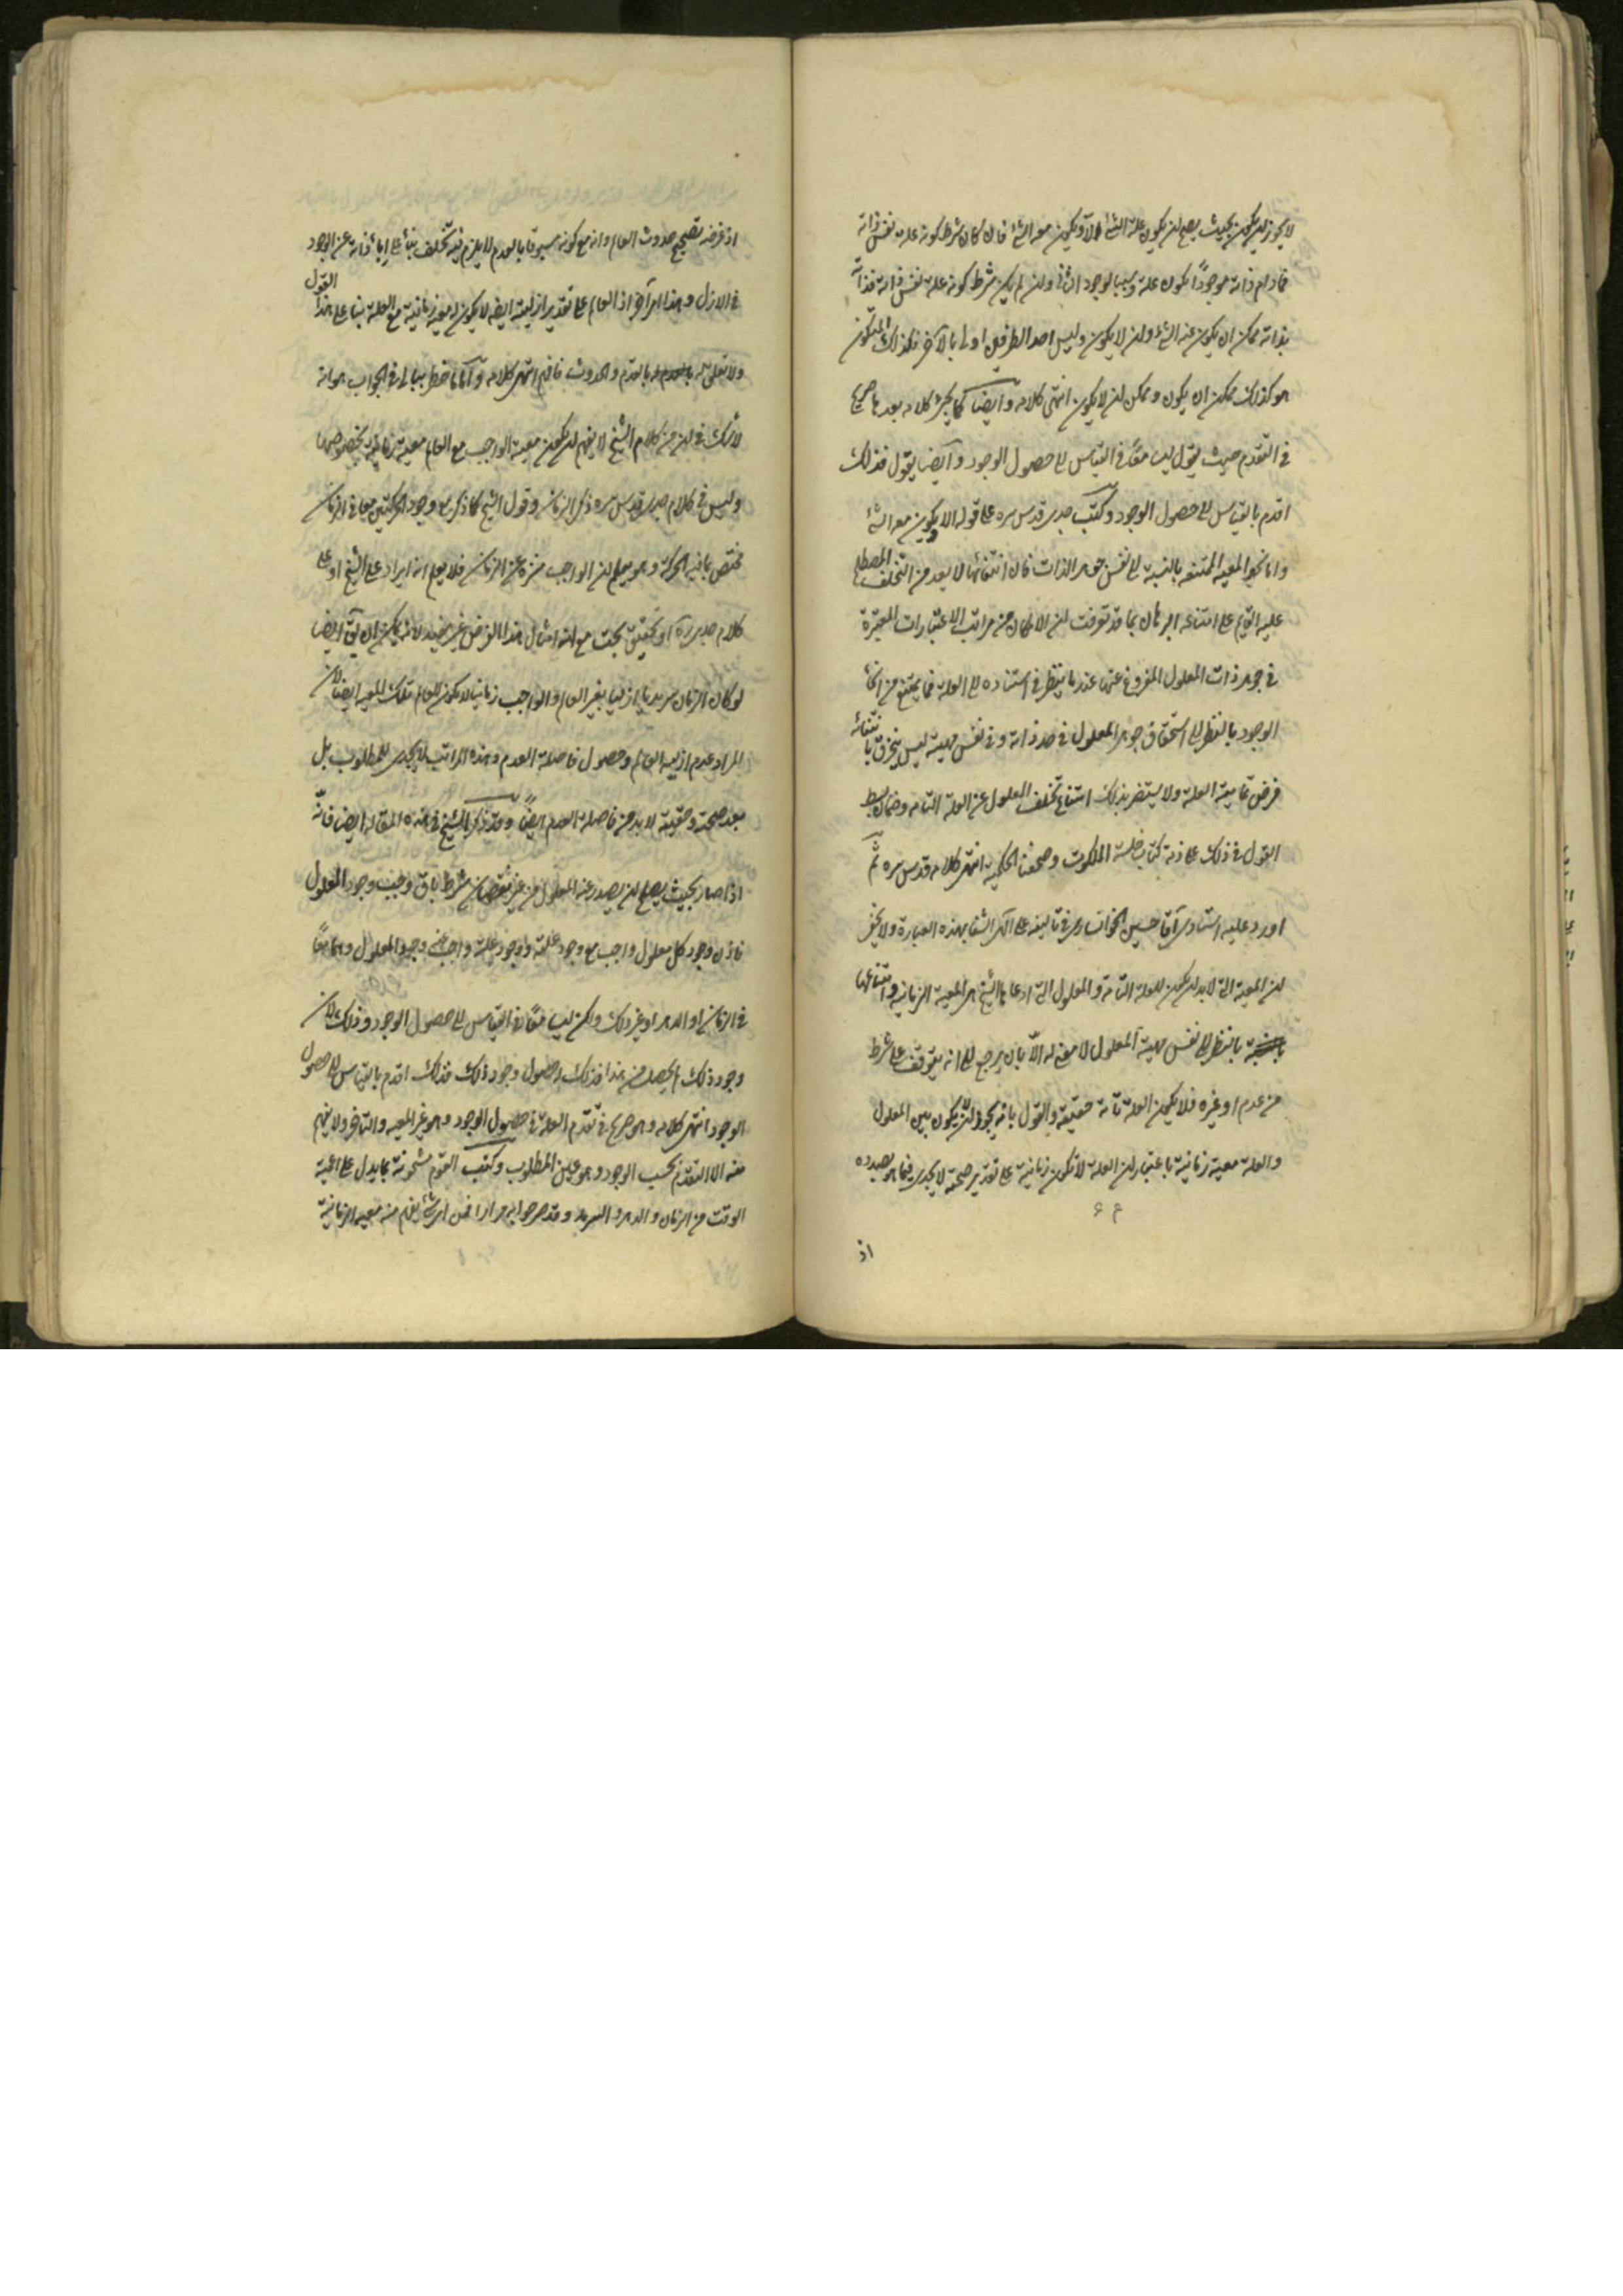 لا يجوز ان يكون بحيث يصلح ان يكون علة الشئ الا ويكون معه الشئ فان كان شرط كونه علة نفس ذاته
فمادام ذاته موجوداً يكون علة وسببا لوجود الثانى وان لم يكن شرط كونه علة نفس ذاته فذاته
بذاته ممكن ان يكون عنه الشئ وان لا يكون وليس احد الطرفين اولى بالآخر فكذلك المتكون
هو كذلك ممكن ان يكون وممكن ان لا يكون انتهى كلامه وايضا كلامه بعد هذا صريح
فى التقدم حيث يقول ليسا معًا فى القياس الى حصول الوجود وايضا يقول فذلك
اقدم بالقياس الى حصول الوجود وكتب جدى قدس سره على قوله الا ويكون معه الشئ
وانما نحو المعيه الممتنعه بالنسبة الى نفس جوهر الذات فان انتفائها لا يعد من التخلف المصطلح
عليه القايم على امتناعه البرهان بما قد تعرفت ان الامكان من مراتب الاعتبارات المعتبرة
فى جوهر ذات المعلول المفروغ عنها عندما ينظر فى استناده الى العلة فما يمتنع من انحاء
الوجود بالنظر الى استحقاق جوهر المعلول فى حد ذاته وفى نفس مهيته ليس ينخرق بانتفائه
فرض تماميته العلة ولا يستضر بذلك امتناع تخلف المعلول عن العلة التامه وضمان بسط
القول فى ذلك على ذمة كتاب خلسة الملكوت وصحفنا الحكمية انتهى كلامه قدس سره ثم
اورد عليه استادى آقا حسين الخوانسارى فى تاليفه على الهى الشفا بهذه العبارة ولا يخفى
ان المعية التى لابد ان يكون للعلة التامة والمعلول التى ادعاها الشيخ هى المعية الزمانية وامتناعها
بالنظر الى نفس مهية المعلول لا معنى له الّا بان يرجع الى انه يتوقف على شرط
من عدم او غيره فلا يكون العلة تامة حقيقة والقول بانه يجوز ان لا يكون بين المعلول
والعلة معية زمانية باعتبار ان العلة لا تكون زمانية على تقدير صحته لا يجدى فيما هو بصدده
اذ
اذ غرضه تصحيح حدوث العالم وانه مع كونه مسبوقا بالعدم لا يلزم فيه تخلف بناء على اباء ذاته عن الوجود
فى الازل وهذا امر آخر اذ العالم على تقدير ازليته ايضا لا يكون له معية زمانية مع العلة بناء على هذا القول
ولا تعلق له بالقدم والحدوث فافهم انتهى كلامه وامّا ما خطر ببالى فى الجواب هو انه
لا شك فى ان من كلام الشيخ لا يفهم ان يكون معية الواجب مع العالم معية زمانية بخصوصها
وليس فى كلام جدى قدس سره ذكر الزمان وقول الشيخ كما ذكر مع وجود الحركتين معا فى الزمان
مختص بما فيه الحركة وهو يعلم ان الواجب منزه عن الزمان فلا يعلم انه ايراد على الشيخ او على
كلام جدى ره او تحقيق بحت مع انه امثال هذا الغرض غير مفيد لانه يمكن ان يق ايضا
لو كان الزمان سرمديا ازليا بغير العالم والواجب زمانيا لا يكون للعالم تلك المعيه ايضا لان
المراد عدم ازلية العالم وحصول فاصلة العدم وهذه المراتب لا يجدى للمطلوب بل
بعد صحته وحقيته لابد من فاصلة العدم ايضًا وقد ذكر الشيخ فى هذه المقاله ايضا فانّه
اذا صار بحيث يصلح ان يصدر عنه المعلول من غير نقصان شرط باق وجب وجود المعلول
فاذن وجود كل معلول واجب مع وجود علته ووجود علته واجب عنه وجود المعلول وهما معًا
فى الزمان او الدهر او غير ذلك ولكن ليسا معًا فى القياس الى حصول الوجود وذلك لان
وجود ذلك لم يحصل من هذا فذلك له حصول وجود ذلك فذلك اقدم بالقياس الى حصول
الوجود انتهى كلامه وهو صريح فى تقدم العلة فى حصول الوجود وهو غير المعيه والتاخر ولا يفهم
منه الا التقدم بحسب الوجود وهو عين المطلوب وكتب القوم مشحونة بما يدل على اعمية
الوقت من الزمان والدهر والسرمد وقد صرحوا به مرارا فمن اى شئ يفهم منه معيه الزمانية